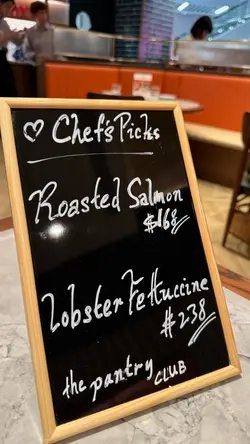 ♡ Chef's Picks
Roasted Salmon
$168
Lobster Fettuccine
$238
the pantry CLUB